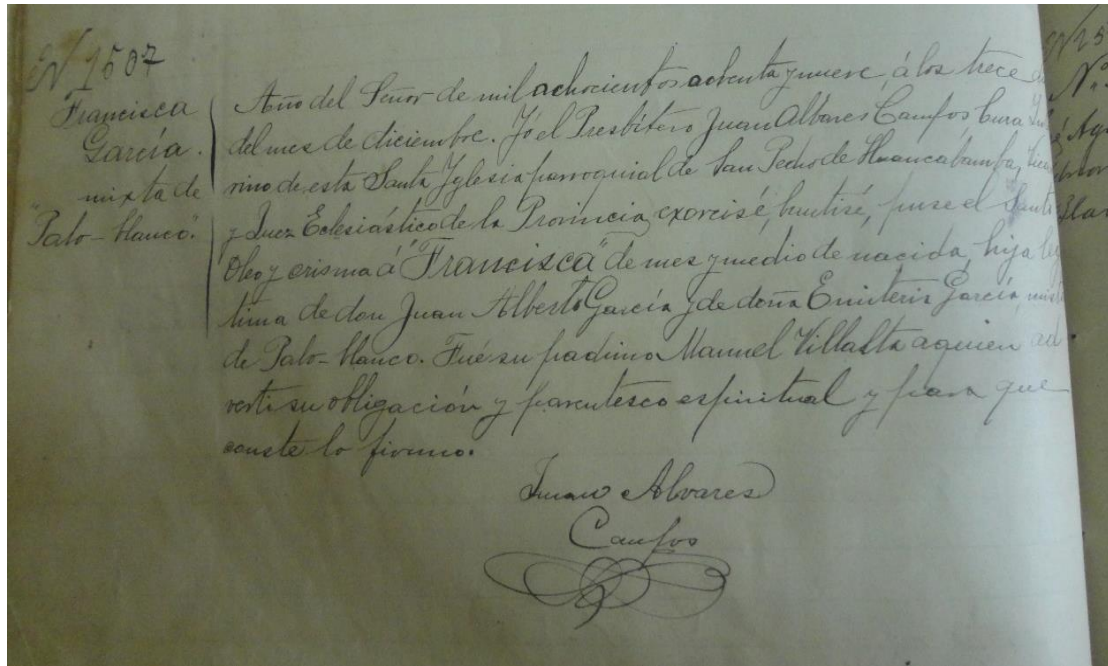 N 1507
Francisca
García.
mixta de
"Palo-blanco."
Año del Señor de mil achocientos achenta y nueve, á los trece
del mes de diciembre. Yo el Presbítero Juan Albares Campos Cura
rino de esta Santa Yglesia parroquial de San Pedro de Huancabamba, Vica
y Juez Eclesiástico de la Provincia, exorcisé, bautisé, puse el Santo
Oleo y crisma á "Francisca" de mes y medio de nacida, hija leg
tima de don Juan Alberto García y de doña Emiteria García, mist
de Palo-blanco. Fué su padrino Manuel Villalta aquien ad
verti su obligación y parentesco espiritual y para que
conste lo firmo.
Juan Alvares
Campos
Nº